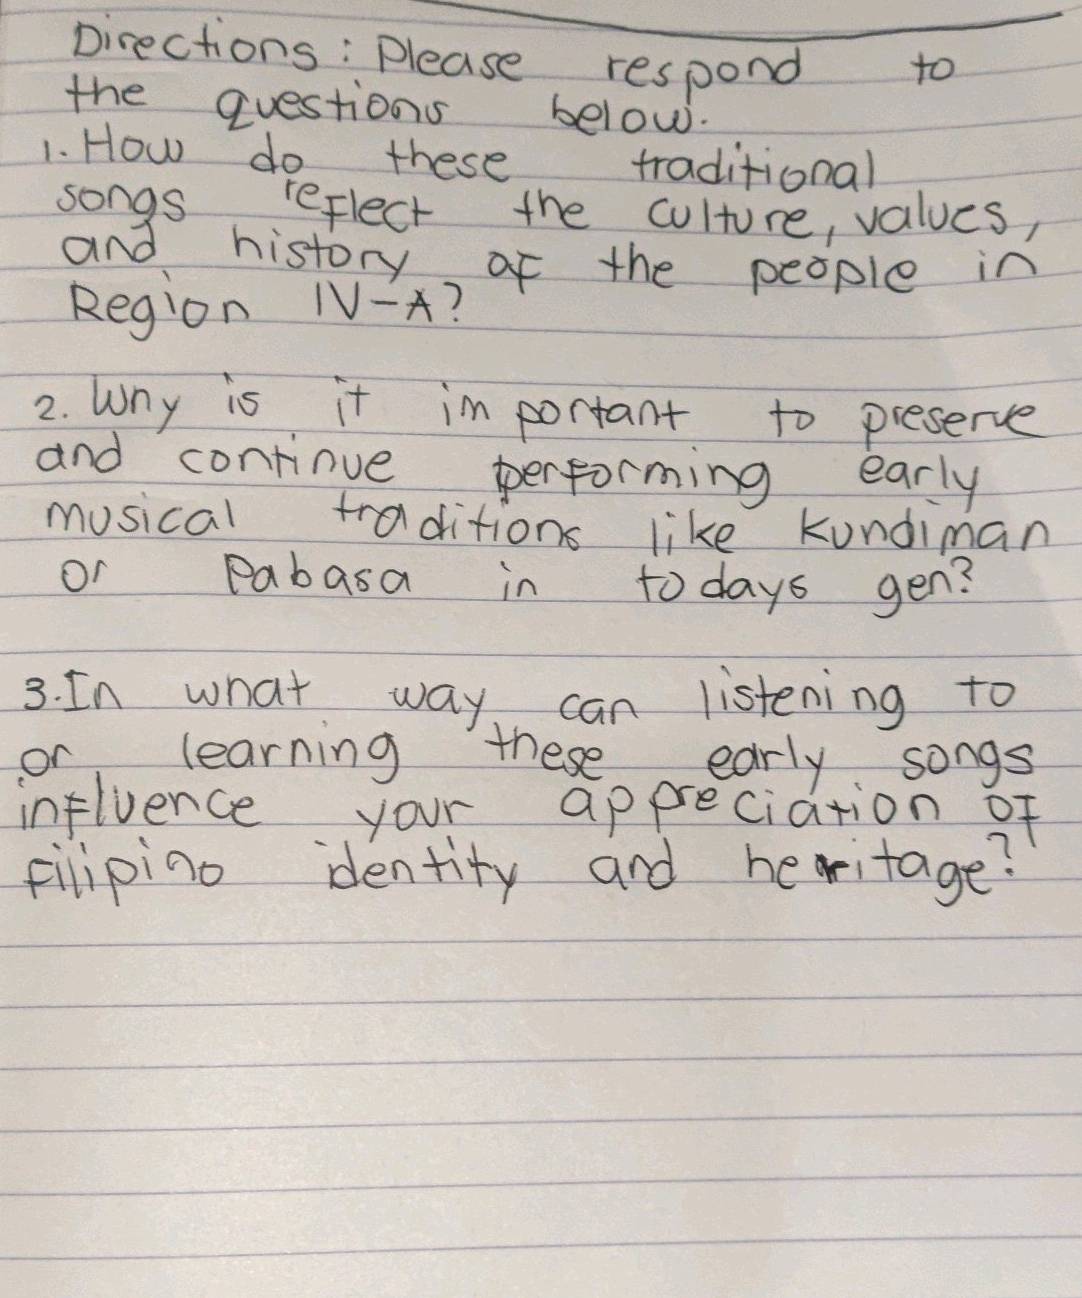 Directions: Please respond to
the questions below.
1. How do these traditional
songs reflect the culture, values,
and history of the people in
Region IV-A?
2. Why is it important to preserve
and continue performing early
musical traditions like Kundiman
or Pabasa in todays gen?
3. In what way can listening to
or learning these early songs
influence your appreciation of
filipino identity and heritage?